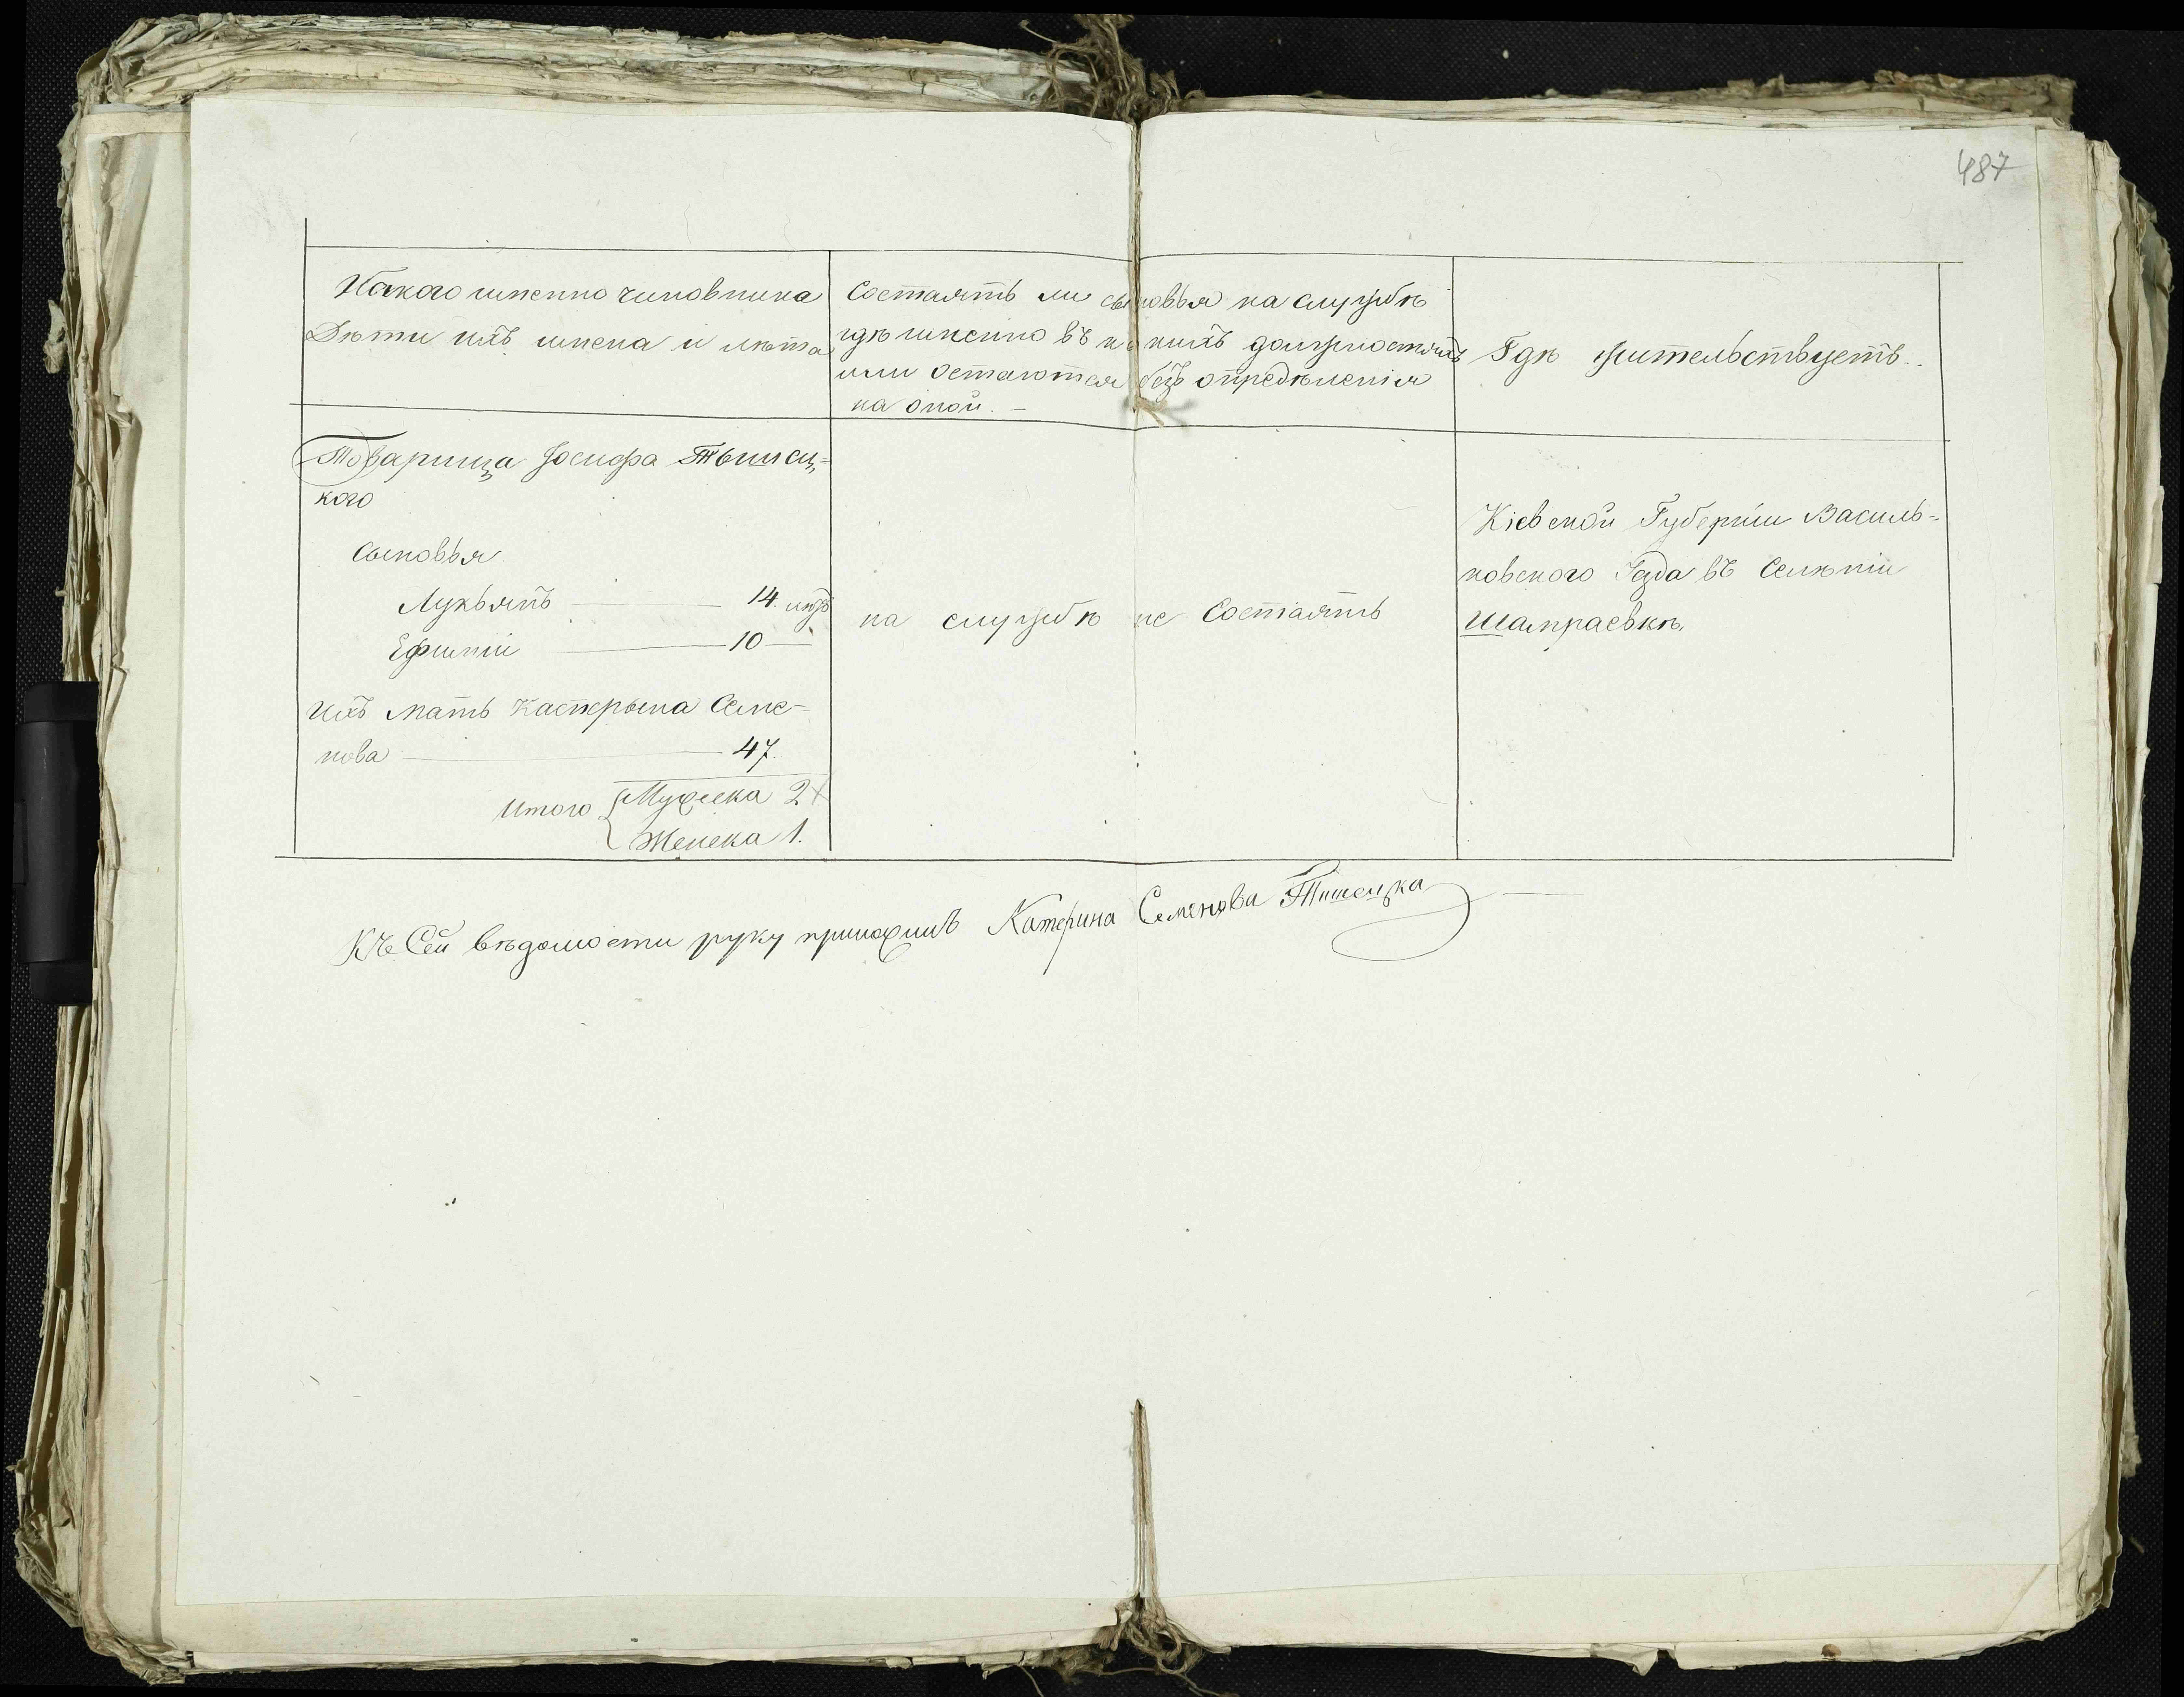 487
Какого именно чиновника
Дѣти ихъ имена и лѣта
Состаятъ ли сыновья на службѣ
гдѣ именно въ какихъ должностяхъ
или остаются безъ определенія
на оной. —
Гдѣ жительствуетъ.
Товарища Іосифа Тышиц=
кого
Сыновья
Лукьянъ — 14. лѣтъ
Ефимій — 10 —
ихъ мать Катерына Семе-
нова — 47.
Итого { Мужеска 2
Женска 1.
на службѣ не Состаятъ
Кіевской Губерніи Василь=
ковского уезда въ Селѣніи
Шамраевкѣ.
Къ Сей вѣдомости руку приложилъ Катерина Семенова Тишецка